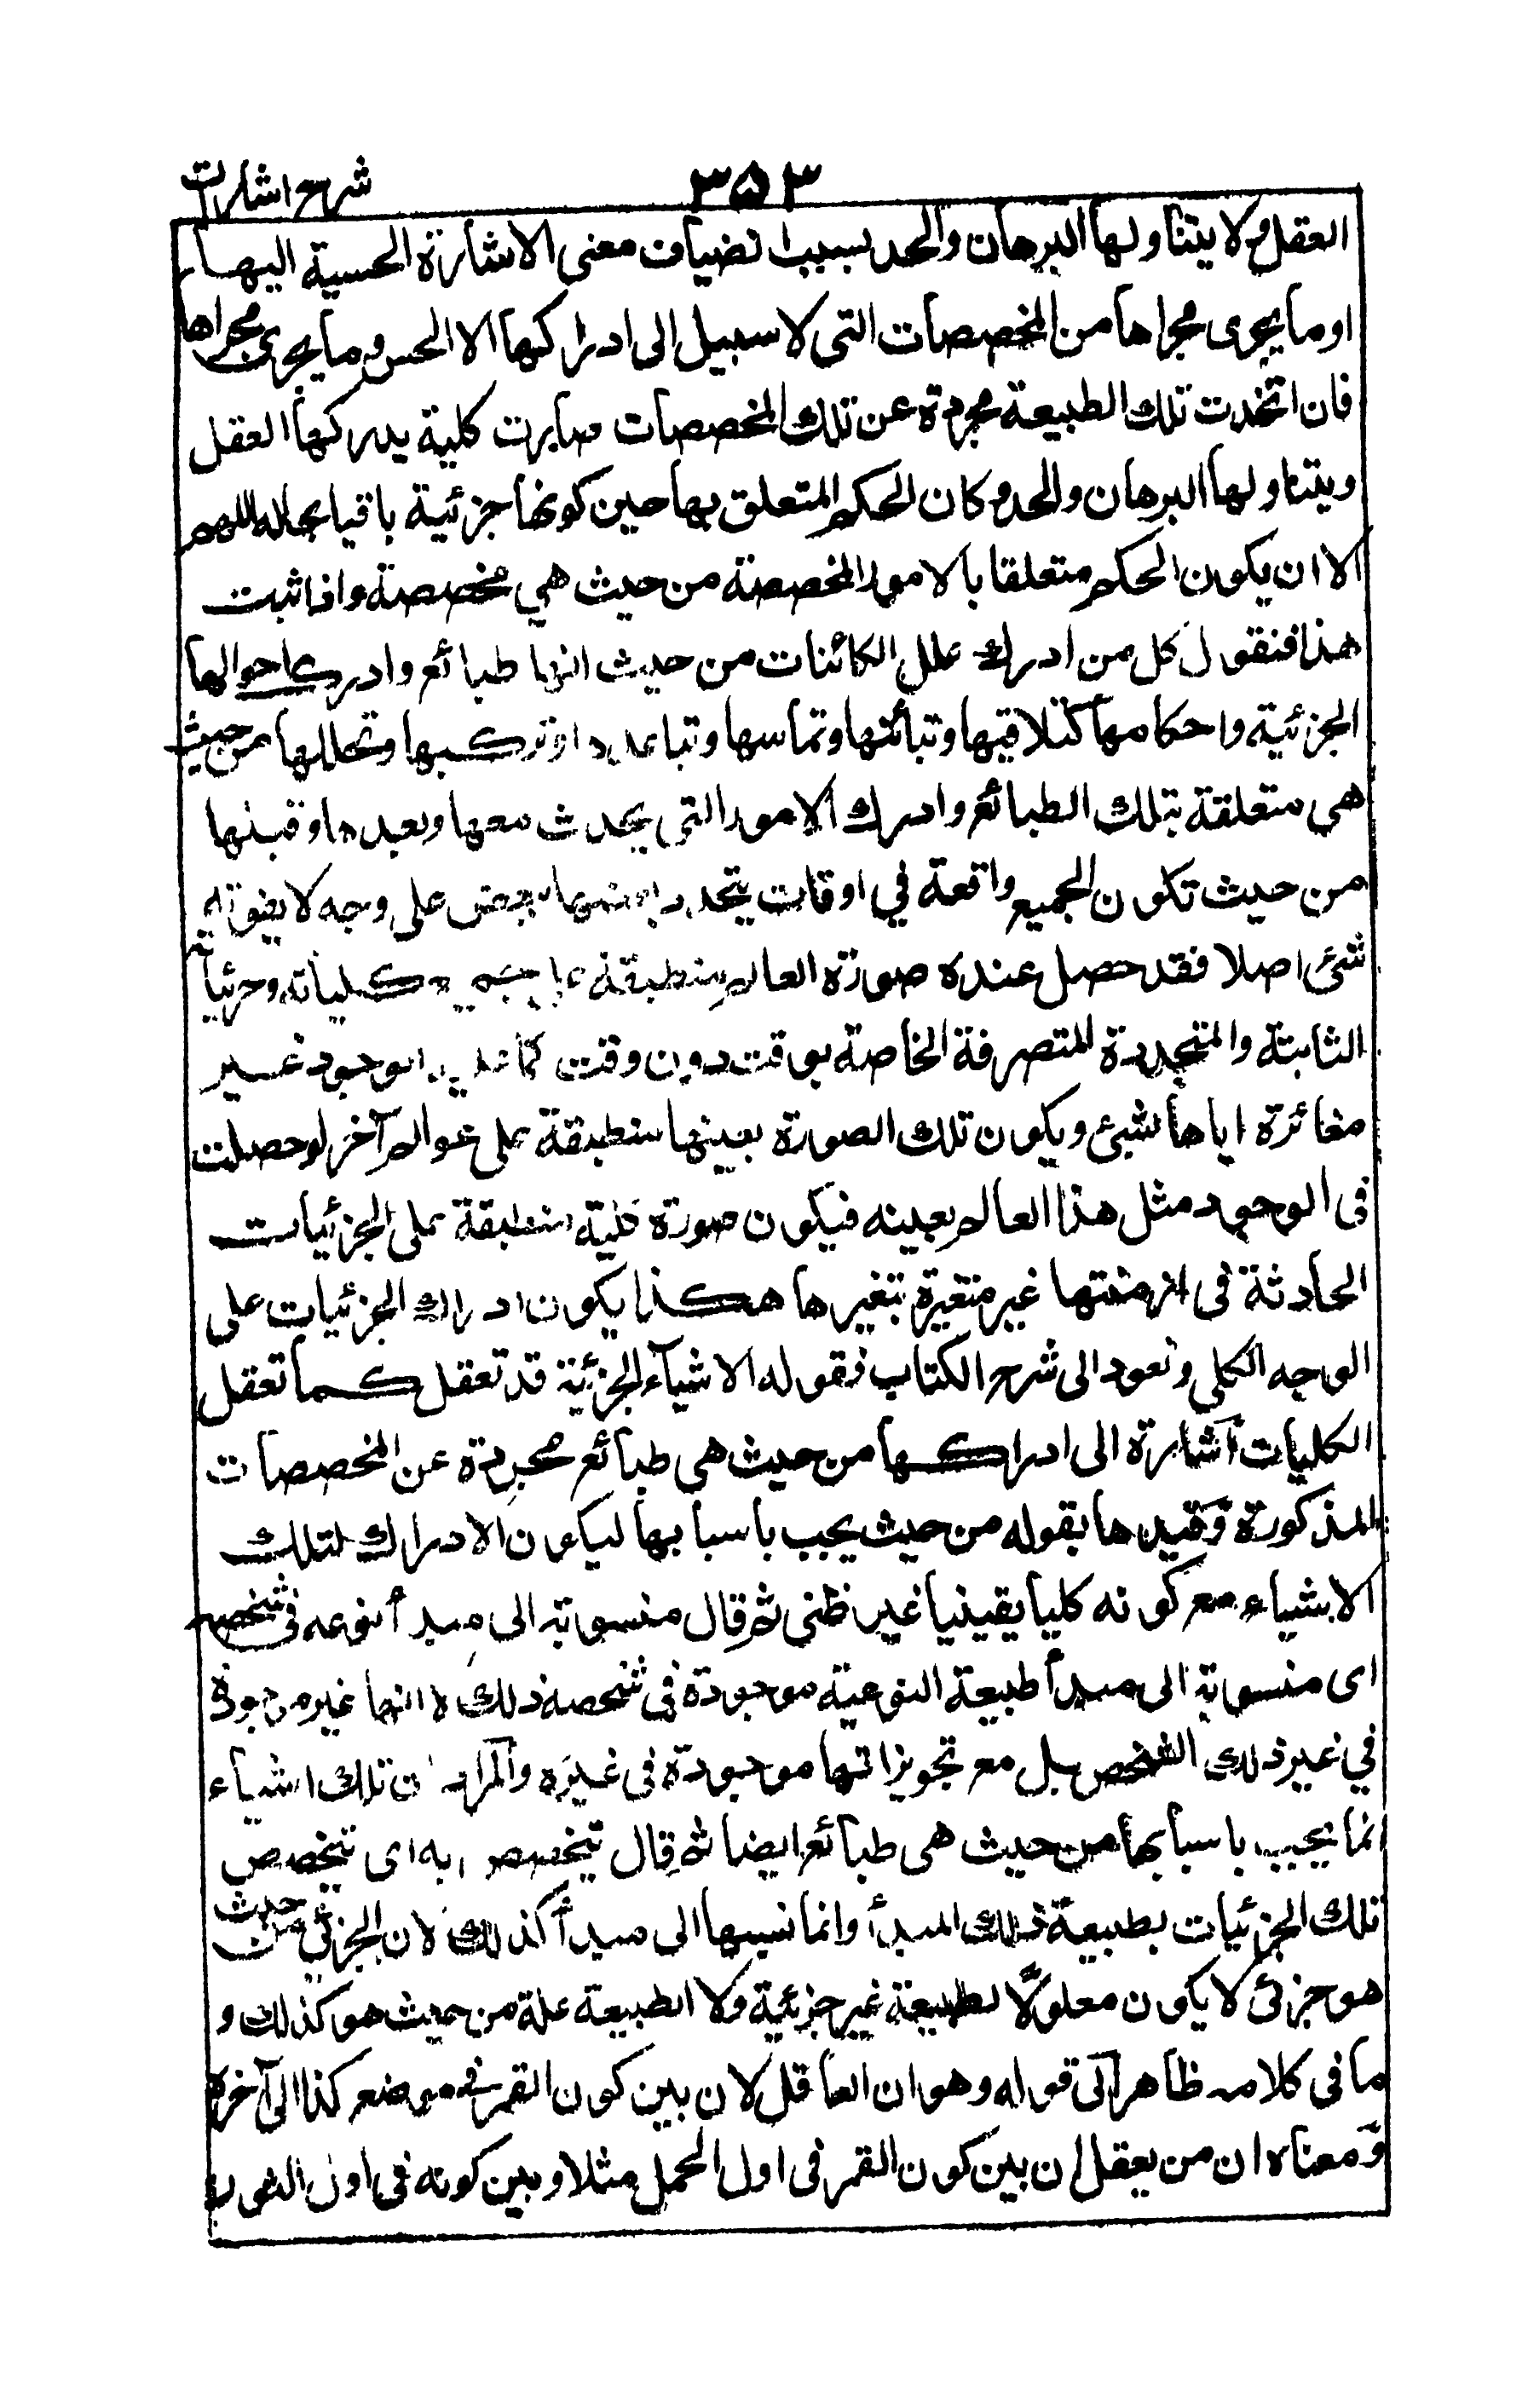 شرح اشارات
٣٥٣
العقل ولا يتناولها البرهان والحد بسبب انضياف معنى الاشارة الحسية اليها
او ما يجرى مجراها من المخصصات التى لا سبيل الى ادراكها الا الحس وما يجرى مجراها
فان اتخذت تلك الطبيعة مجردة عن تلك المخصصات صارت كلية يدركها العقل
ويتناولها البرهان والحد وكان الحكم المتعلق بها حين كونها جزئية باقيا بحاله اللهم
الا ان يكون الحكم متعلقا بالامور المخصصة من حيث هي مخصصة واذا ثبت
هذا فنقول كل من ادرك علل الكائنات من حيث انها طبائع وادرك احوالها
الجزئية واحكامها كتلاقيها وتبائنها وتماسها وتباعدها وتركبها وتحللها من حيث
هي متعلقة بتلك الطبائع وادرك الامور التى يحدث معها وبعدها وقبلها
من حيث تكون الجميع واقعة في اوقات يتحدد بعضها ببعض على وجه لا يفوته
شئ اصلا فقد حصل عنده صورة العالم منطبقة على جميع كلياته وجزئياته
الثابتة والمتجددة المتصرفة الخاصة بوقت دون وقت كما عليه الوجود غير
مغائرة اياها لشئ ويكون تلك الصورة بعينها منطبقة على عوالم آخر لو حصلت
فى الوجود مثل هذا العالم بعينه فيكون صورة كلية منطبقة على الجزئيات
الحادثة فى ازمنتها غير متغيرة بتغيرها هكذا يكون ادراك الجزئيات على
الوجه الكلى ونعود الى شرح الكتاب فقوله الاشياء الجزئية قد تعقل كما تعقل
الكليات اشارة الى ادراكها من حيث هى طبائع مجردة عن المخصصات
المذكورة وقيدها بقوله من حيث يجب باسبابها ليكون الادراك لتلك
الاشياء مع كونه كليا يقينيا غير ظنى ثم قال منسوبة الى مبدأ نوعه فى شخصه
اى منسوبة الى مبدأ طبيعة النوعية موجودة فى شخصه ذلك لا انها غير موجودة
في غير ذلك الشخص بل مع تجويز انها موجودة فى غيره والمراد ان تلك اشياء
انما يجب باسبابها من حيث هى طبائع ايضا ثم قال تتخصص به اى تتخصص
تلك الجزئيات بطبيعة ذلك المبدأ وانما نسبها الى مبدأ كذلك لان الجزئى من حيث
هو جزئى لا يكون معلولا لطبيعة غير جزئية ولا الطبيعة علة من حيث هو كذلك و
ما فى كلامه ظاهر الى قوله وهو ان العاقل لان بين كون القمر فى موضع كذا الى آخره
ومعناه ان من يعقل ان بين كون القمر فى اول الحمل مثلا وبين كونه فى اول الثور